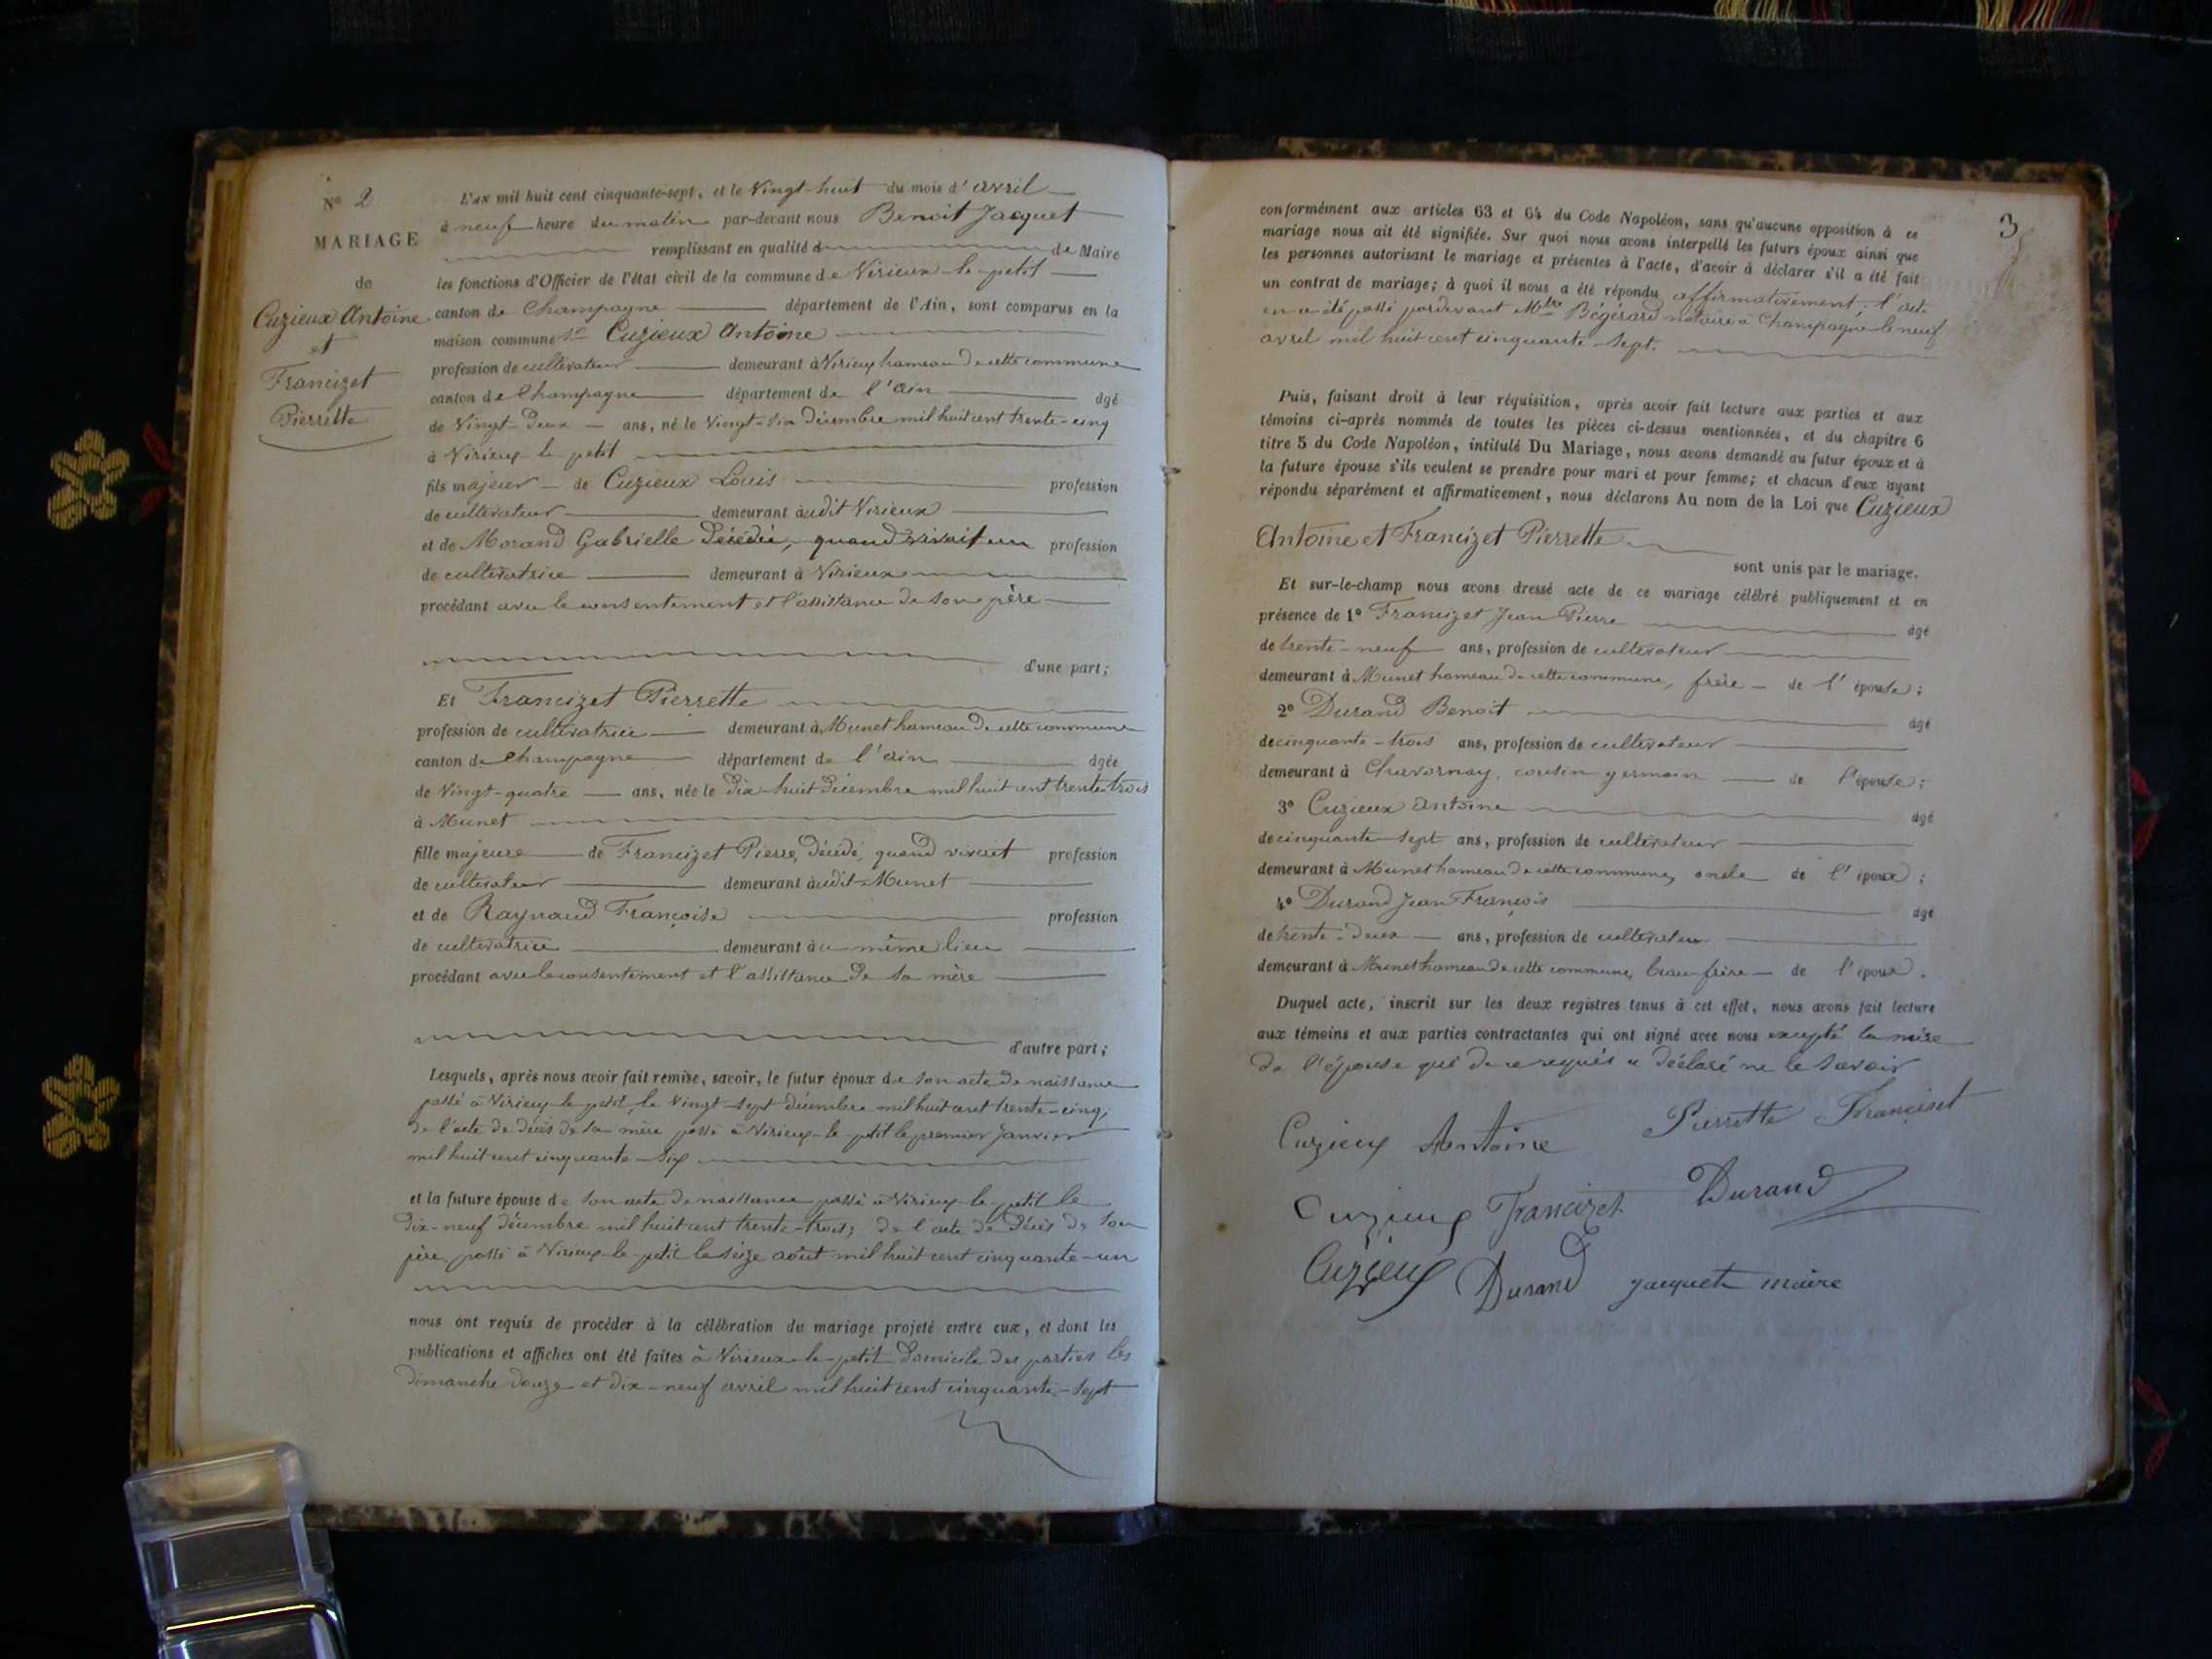 N° 2
MARIAGE
de
Cuzieux Antoine
et
Francizet
Pierrette
L'AN mil huit cent cinquante-sept, et le Vingt-huit du mois d'avril
à neuf heure du matin par-devant nous Benoit Jacquet
remplissant en qualité de Maire
les fonctions d'Officier de l'état civil de la commune de Virieux-le-petit
canton de Champagne département de l'Ain, sont comparus en la
maison commune Sr Cuzieux Antoine
profession de cultivateur demeurant à Virieux hameau de cette commune
canton de Champagne département de l'ain âgé
de Vingt-Deux ans, né le Vingt-six décembre mil huit cent trente-cinq
à Virieux-le-petit
fils majeur de Cuzieux Louis profession
de cultivateur demeurant audit Virieux
et de Morand Gabrielle Décédée, quand vivait profession
de cultivatrice demeurant à Virieux
procédant avec le consentement et l'assistance de son père
d'une part;
Et Francizet Pierrette
profession de cultivatrice demeurant à Munet hameau de cette commune
canton de Champagne département de l'ain âgée
de Vingt-quatre ans, née le dix-huit décembre mil huit cent trente-trois
à Munet
fille majeure de Francizet Pierre, décédé, quand vivait profession
de cultivateur demeurant audit Munet
et de Raynaud Françoise profession
de cultivatrice demeurant au même lieu
procédant avec le consentement et l'assistance de sa mère
d'autre part;
Lesquels, après nous avoir fait remise, savoir, le futur époux de son acte de naissance
passé à Virieux-le-petit, le Vingt-sept décembre mil huit cent trente-cinq;
de l'acte de décès de sa mère passé à Virieux-le-petit le premier Janvier
mil huit cent cinquante-six
et la future épouse de son acte de naissance passé à Virieux-le-petit le
Dix-neuf décembre mil huit cent trente-trois; de l'acte de Décès de son
père, passé à Virieux-le-petit le seize août mil huit cent cinquante-un
nous ont requis de procéder à la célébration du mariage projeté entre eux, et dont les
publications et affiches ont été faites à Virieux-le-petit Domicile des parties les
Dimanche douze et dix-neuf avril mil huit cent cinquante-sept
3
conformément aux articles 63 et 64 du Code Napoléon, sans qu'aucune opposition à ce
mariage nous ait été signifiée. Sur quoi nous avons interpellé les futurs époux ainsi que
les personnes autorisant le mariage et présentes à l'acte, d'avoir à déclarer s'il a été fait
un contrat de mariage; à quoi il nous a été répondu affirmativement; l'acte
en a été passé pardevant Bégérard notaire à Champagne le neuf
avril mil huit cent cinquante-sept.
Puis, faisant droit à leur réquisition, après avoir fait lecture aux parties et aux
témoins ci-après nommés de toutes les pièces ci-dessus mentionnées, et du chapitre 6
titre 5 du Code Napoléon, intitulé Du Mariage, nous avons demandé au futur époux et à
la future épouse s'ils veulent se prendre pour mari et pour femme; et chacun d'eux ayant
répondu séparément et affirmativement, nous déclarons Au nom de la Loi que Cuzieux
Antoine et Francizet Pierrette
sont unis par le mariage.
Et sur-le-champ nous avons dressé acte de ce mariage célébré publiquement et en
présence de 1° Francizet Jean Pierre âgé
de trente-neuf ans, profession de cultivateur
demeurant à Munet hameau de cette commune, frère de l'épouse;
2° Durand Benoit âgé
de cinquante-trois ans, profession de cultivateur
demeurant à Chavornay, cousin germain de l'épouse;
3° Cuzieux Antoine âgé
de cinquante-sept ans, profession de cultivateur
demeurant à Munet hameau de cette commune, oncle de l'époux;
4° Durand Jean François âgé
de trente-deux ans, profession de cultivateur
demeurant à Munet hameau de cette commune, beau-frère de l'époux.
Duquel acte, inscrit sur les deux registres tenus à cet effet, nous avons fait lecture
aux témoins et aux parties contractantes qui ont signé avec nous excepté la mère
de l'épouse qui de ce requis a déclaré ne le savoir
Cuzieux Antoine Pierrette Franciset
Cuzieux Francizet Durand
Cuzieux Durand Jacquet maire